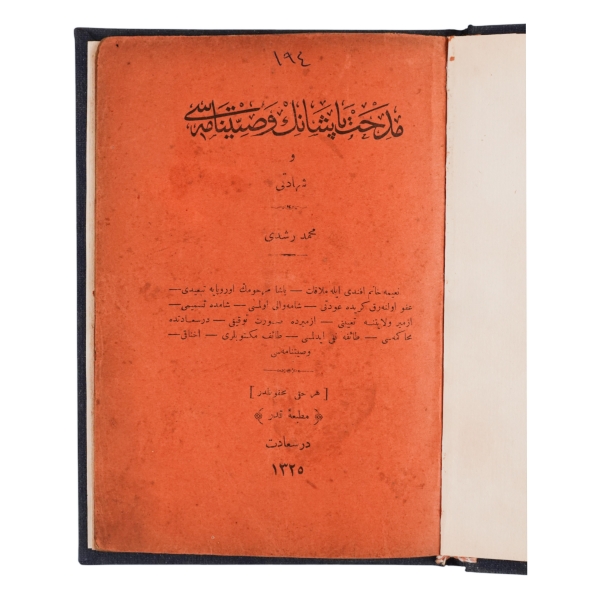 ١٩٤
مدحت پاشانك وصيتنامه سى
و
شهادتى
محمد رشدى
نعيمه خانم افندى ايله ملاقات — پاشا مرحومك اوروپايه تبعيدى —
عفو اولنه رق كريده عودتى — شامه والى اولسى — شامده تنسيقى —
ازمير ولايتنه تعيينى — ازميرده صورت توقيفى — درسعادتده
محاكمه سى — طائفه نفى ايدلسى — طائف مكتوبلرى — اختناقى —
وصيتنامه سى
[ هر حقى محفوظدر ]
﴿ مطبعهٔ قدر ﴾
در سعادت
١٣٢٥